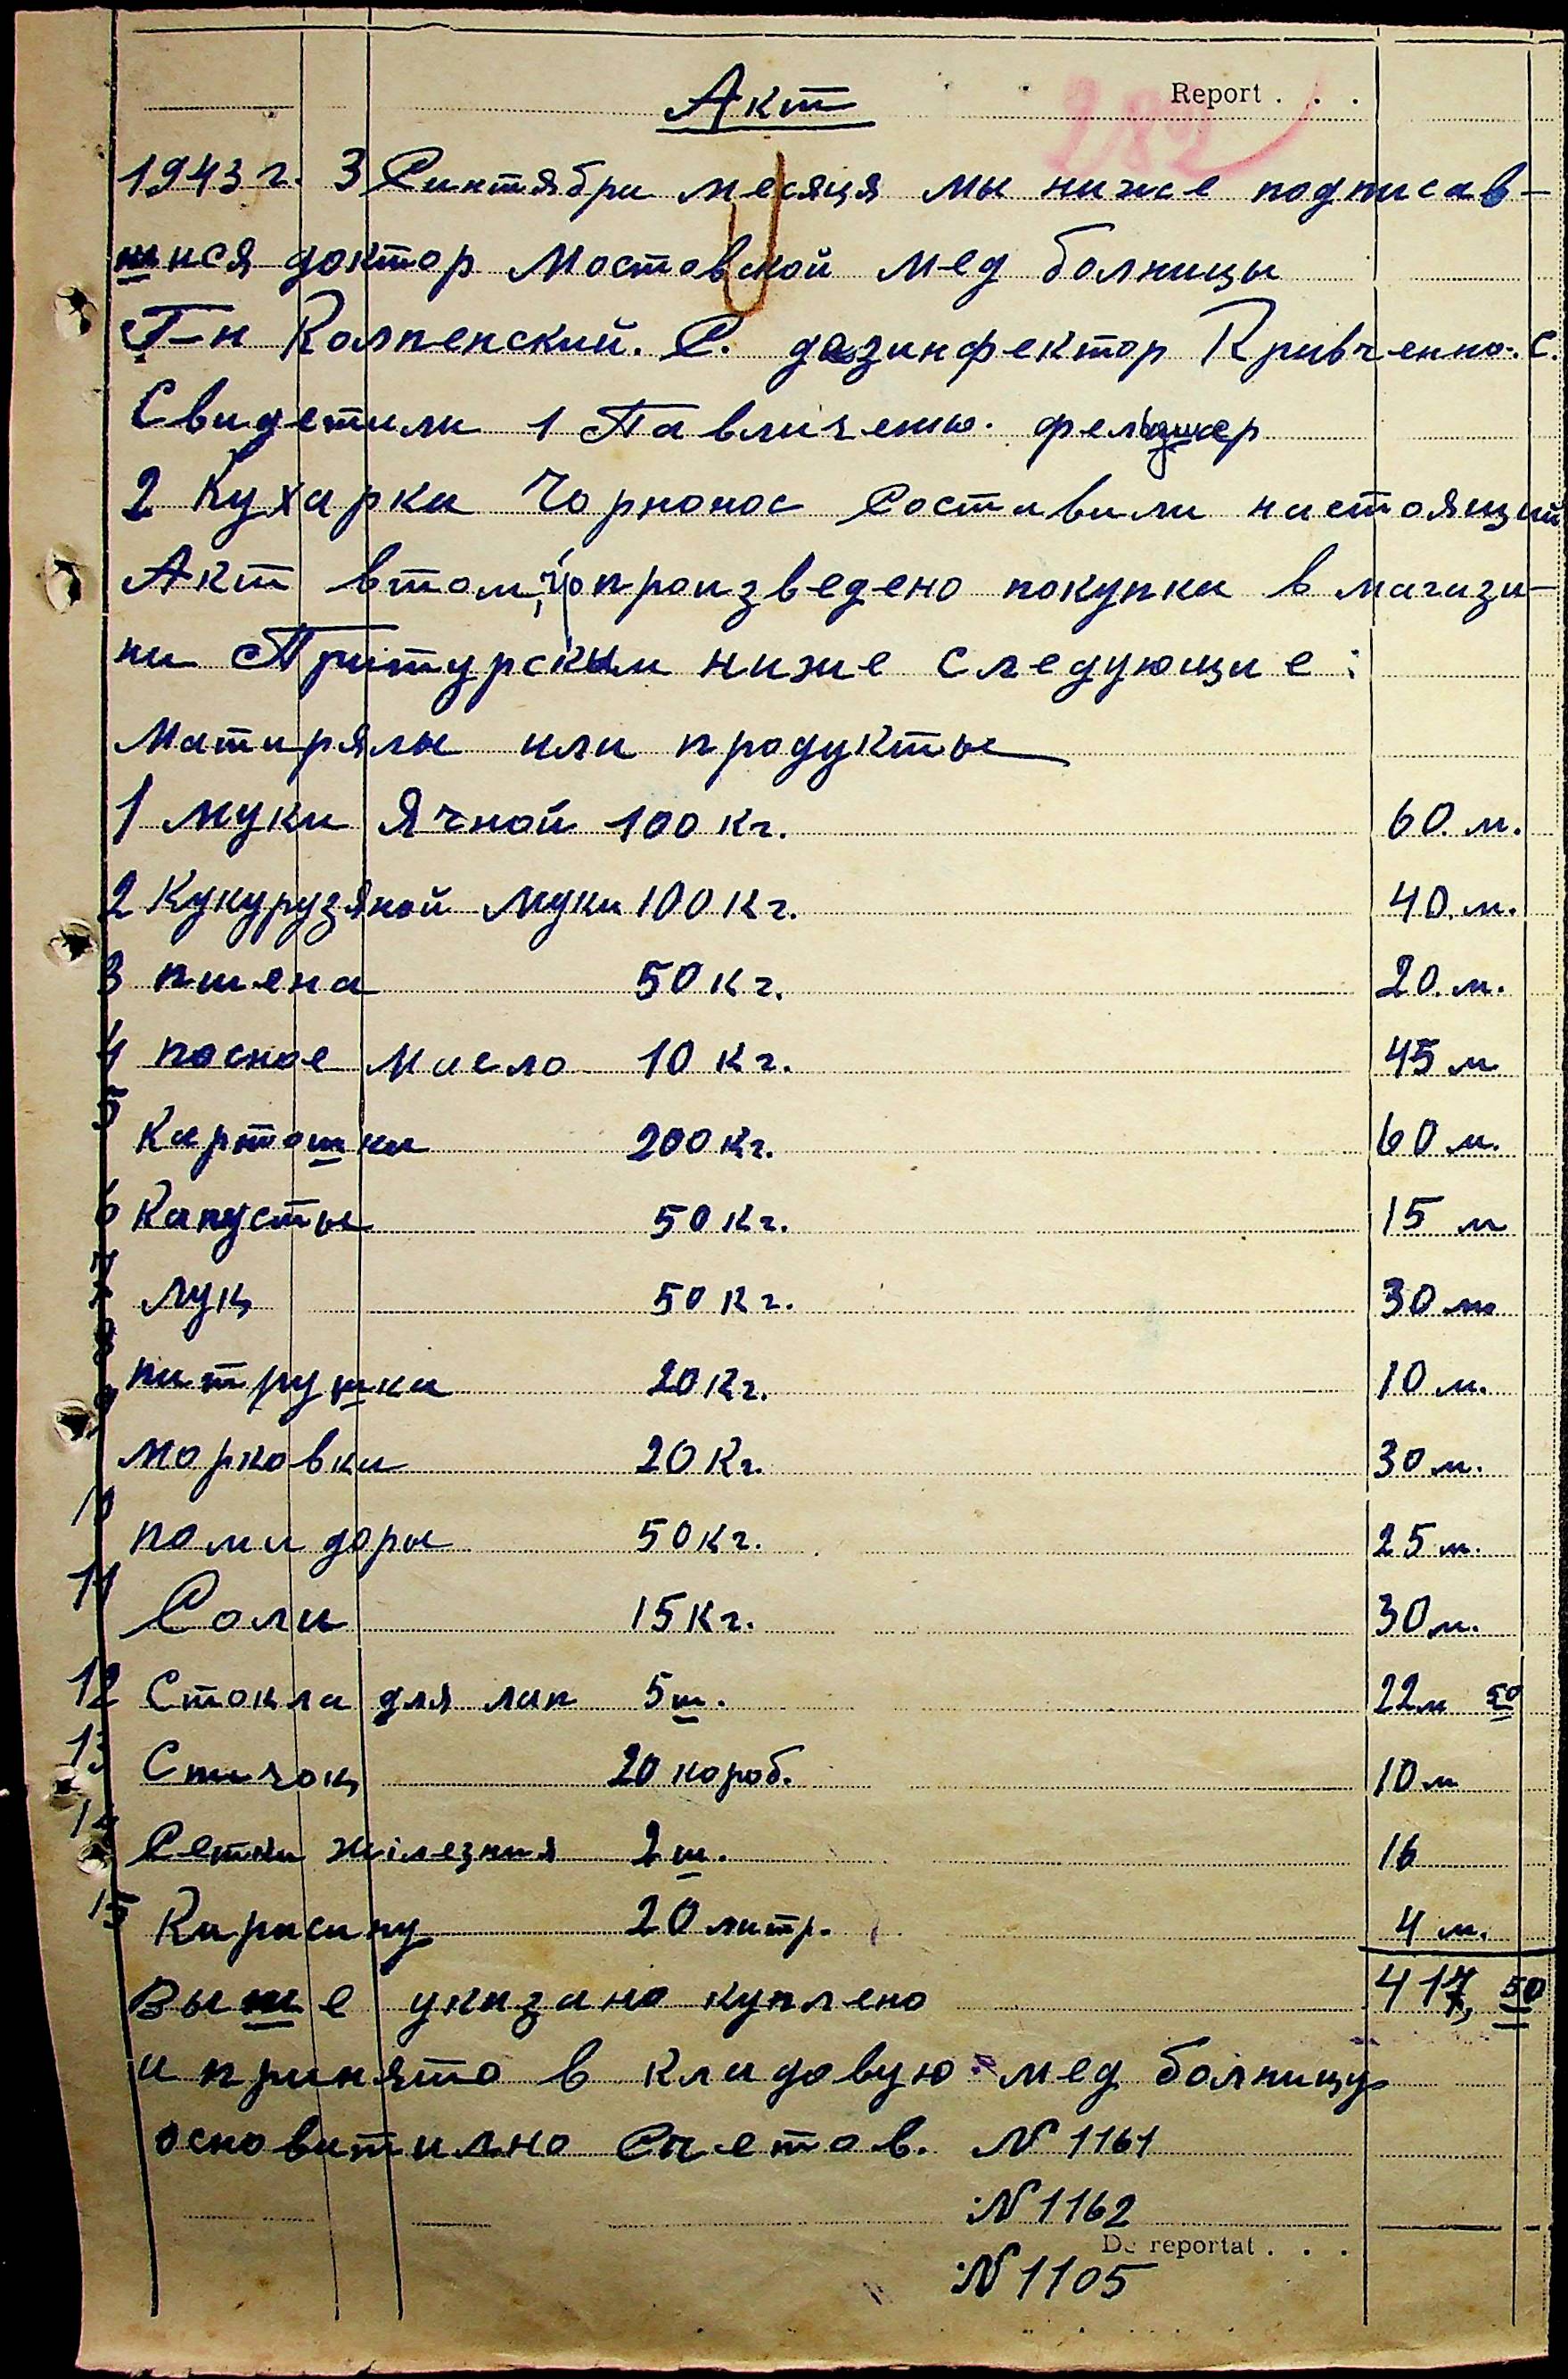 Report . . .
282
Акт
1943 г. 3 Синтября месяця мы ниже подписав-
шися доктор Мостовской мед болницы
Г-н Колпенский. С. дезинфектор Кривченко. С.
Свидетили 1 Павличенко. фельдшер
2 Кухарка Чорнонос Составили настоящий
Акт втом, что произведено покупка в магази-
ни Притурским ниже следующие:
Матирялы или продукты
1 муки Ячной 100 кг. 60. м.
2 Кукурузяной муки 100 кг. 40. м.
3 пшена 50 кг. 20. м.
4 посное масло 10 кг. 45 м
5 Картошки 200 кг. 60 м.
6 Капусты 50 кг. 15 м
7 лук 50 кг. 30 м
8 питрушки 20 кг. 10 м.
9 морковки 20 кг. 30 м.
10 помидоры 50 кг. 25 м.
11 Соли 15 кг. 30 м.
12 Стокла для лап 5 ш. 22 м 50
13 Спичок 20 короб. 10 м
14 Сетки жілезния 2 ш. 16
15 Карасину 20 литр. 4 м.
Выше указано куплено 417, 50
и принято в кладовую мед болницу
основатилно Счетов. N 1161
N 1162
De reportat . . .
N 1105